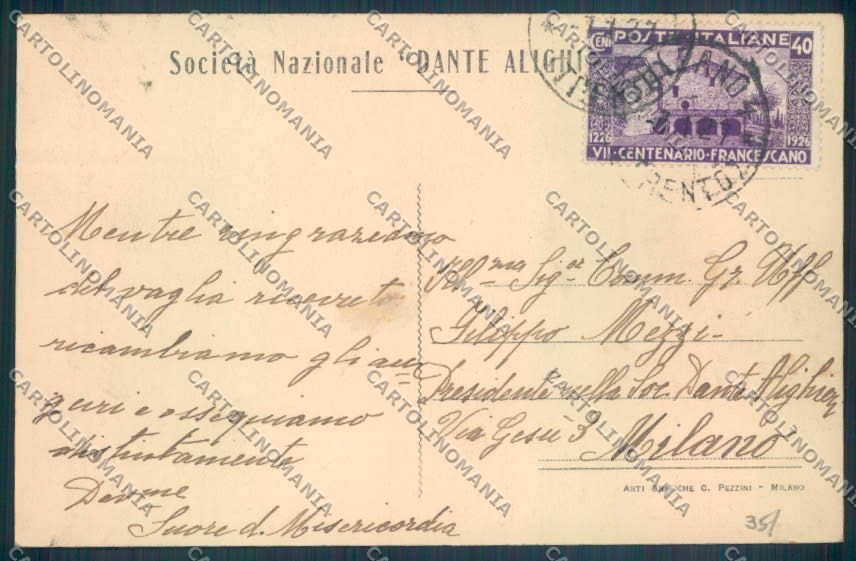 Società Nazionale "DANTE ALIGHI
CENT POSTE ITALIANE 40
1226 1926
VII-CENTENARIO-FRANCESCANO
Mentre ringraziamo
del vaglia ricevuto
ricambiamo gli au
guri e ossequiamo
distintamente
Devme
Suore d. Misericordia
Ill.ma Sig.or Comm. Gr. Uff
Filippo Mezzi
Presidente della Soc. Dante Alighieri
Via Gesù 3 Milano
ARTI GRAFICHE C. PEZZINI - MILANO
35/
CARTOLINOMANIA